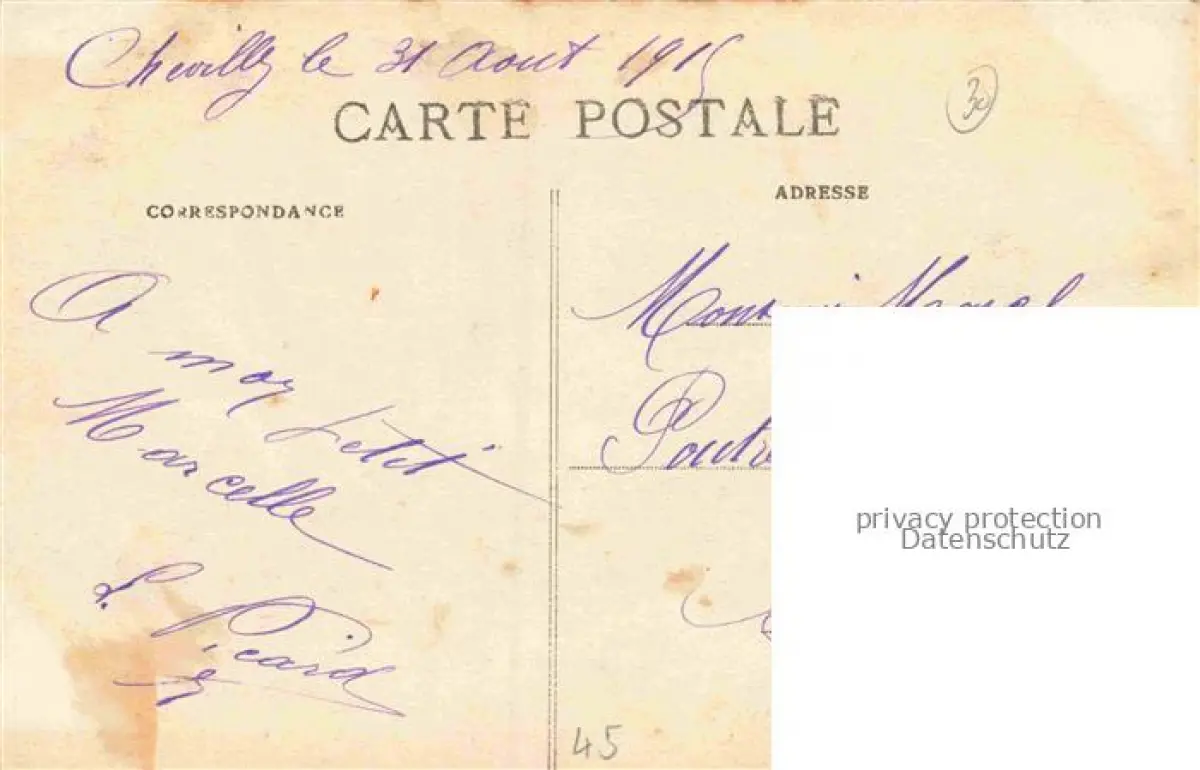 Chevilly le 31 Aout 1915
CARTE POSTALE
30
CORRESPONDANCE
ADRESSE
A
mon petit
Marcelle
L. Picard
45
privacy protection
Datenschutz